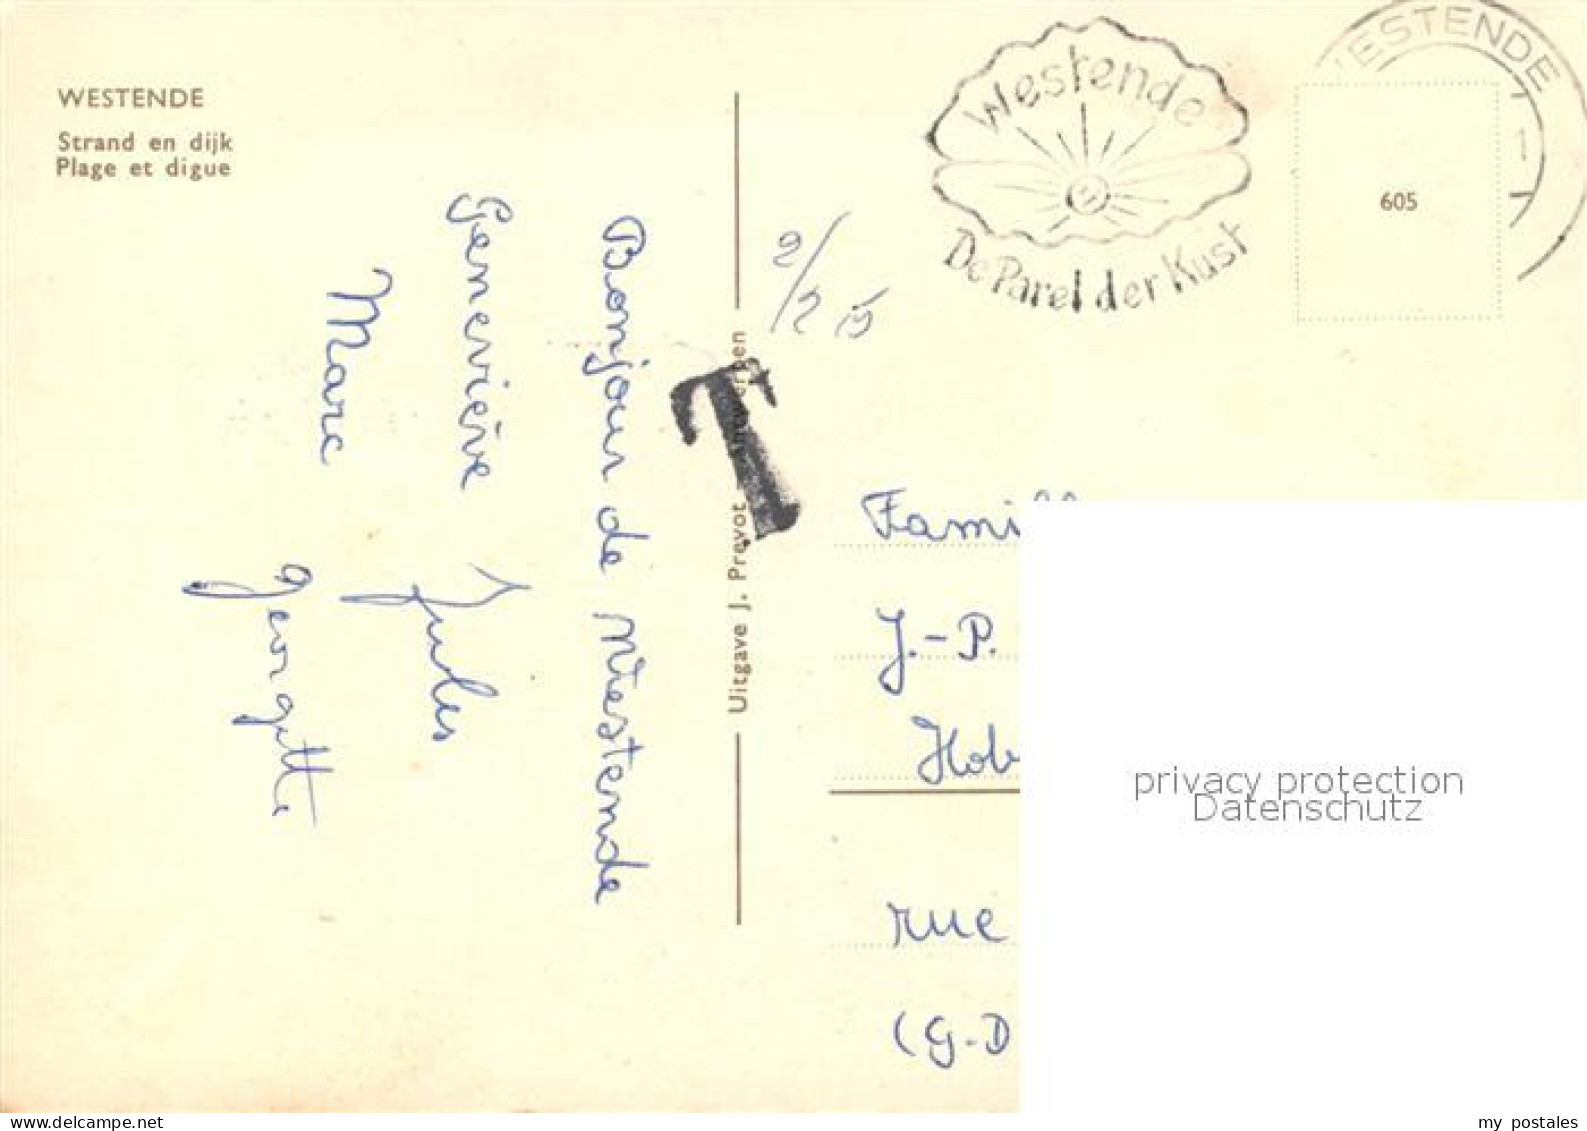 WESTENDE
Strand en dijk
Plage et digue
Bonjour de Westende
Geneviève
Jules
Marc
georgette
Uitgave J. Prevot
T
Westende
De Parel der Kust
WESTENDE
605
J.-P.
rue
(G-D
privacy protection
Datenschutz
my postales